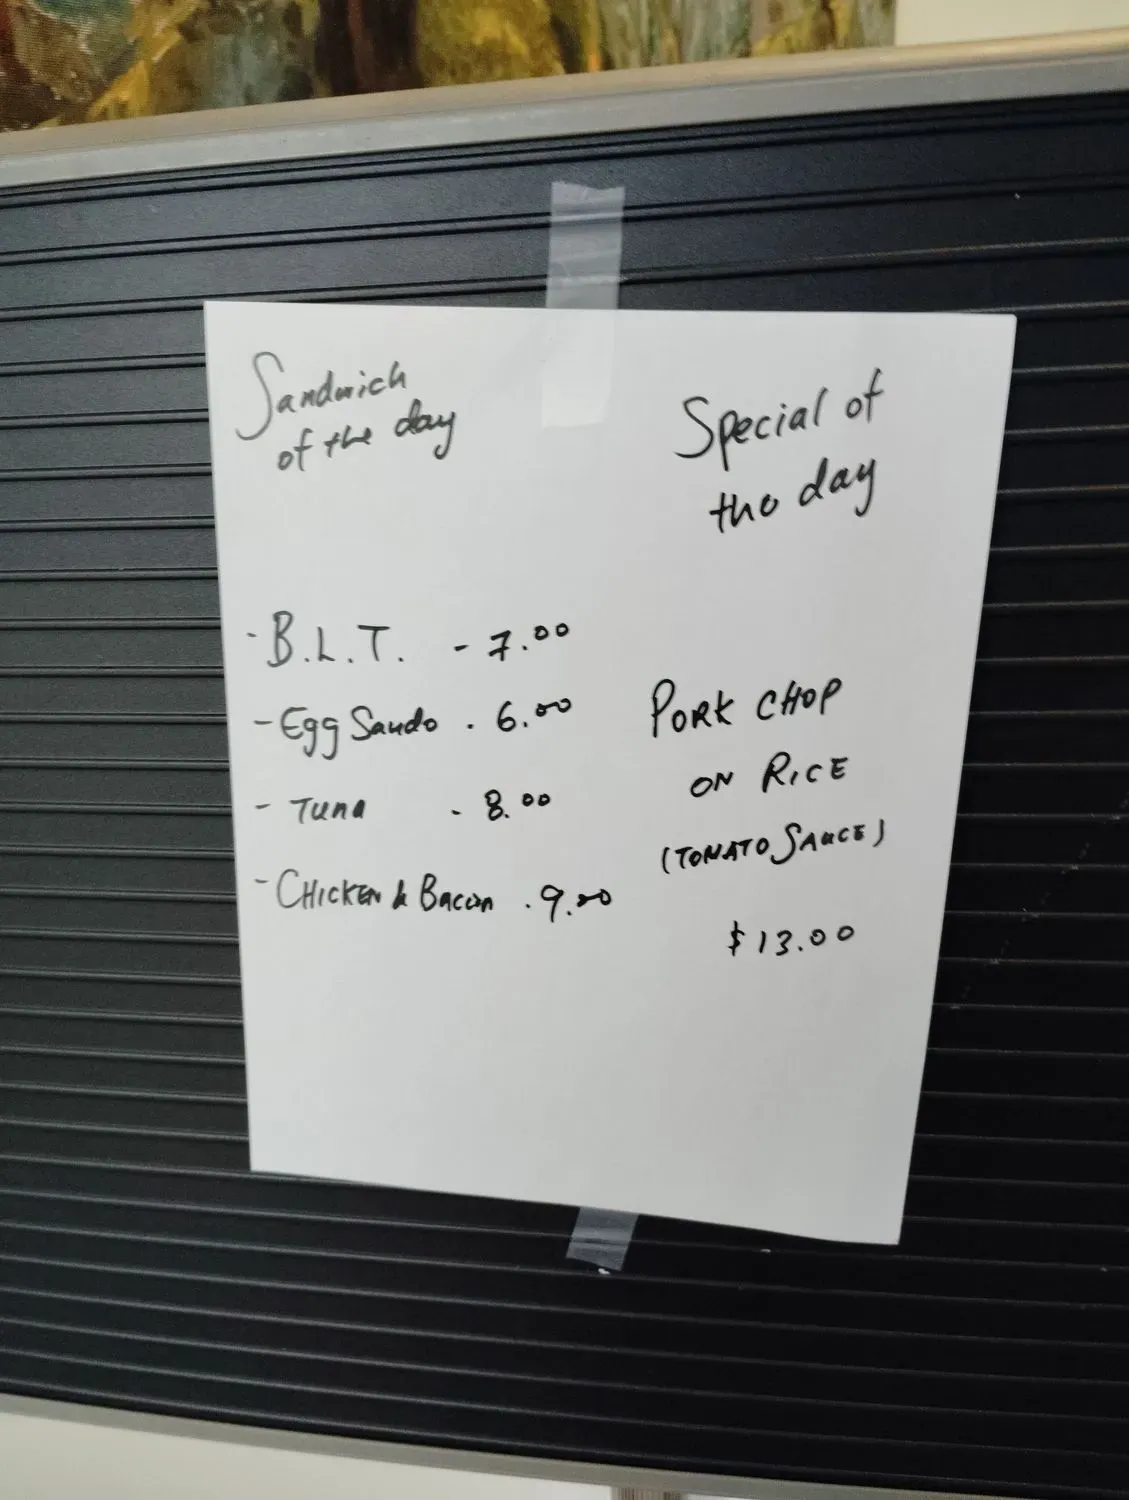 Sandwich
of the day
- B.L.T. - 7.00
- Egg Sando . 6.00
- Tuna - 8.00
- CHICKEN & Bacon . 9.00
Special of
the day
PORK CHOP
ON RICE
(TOMATO SAUCE)
$13.00